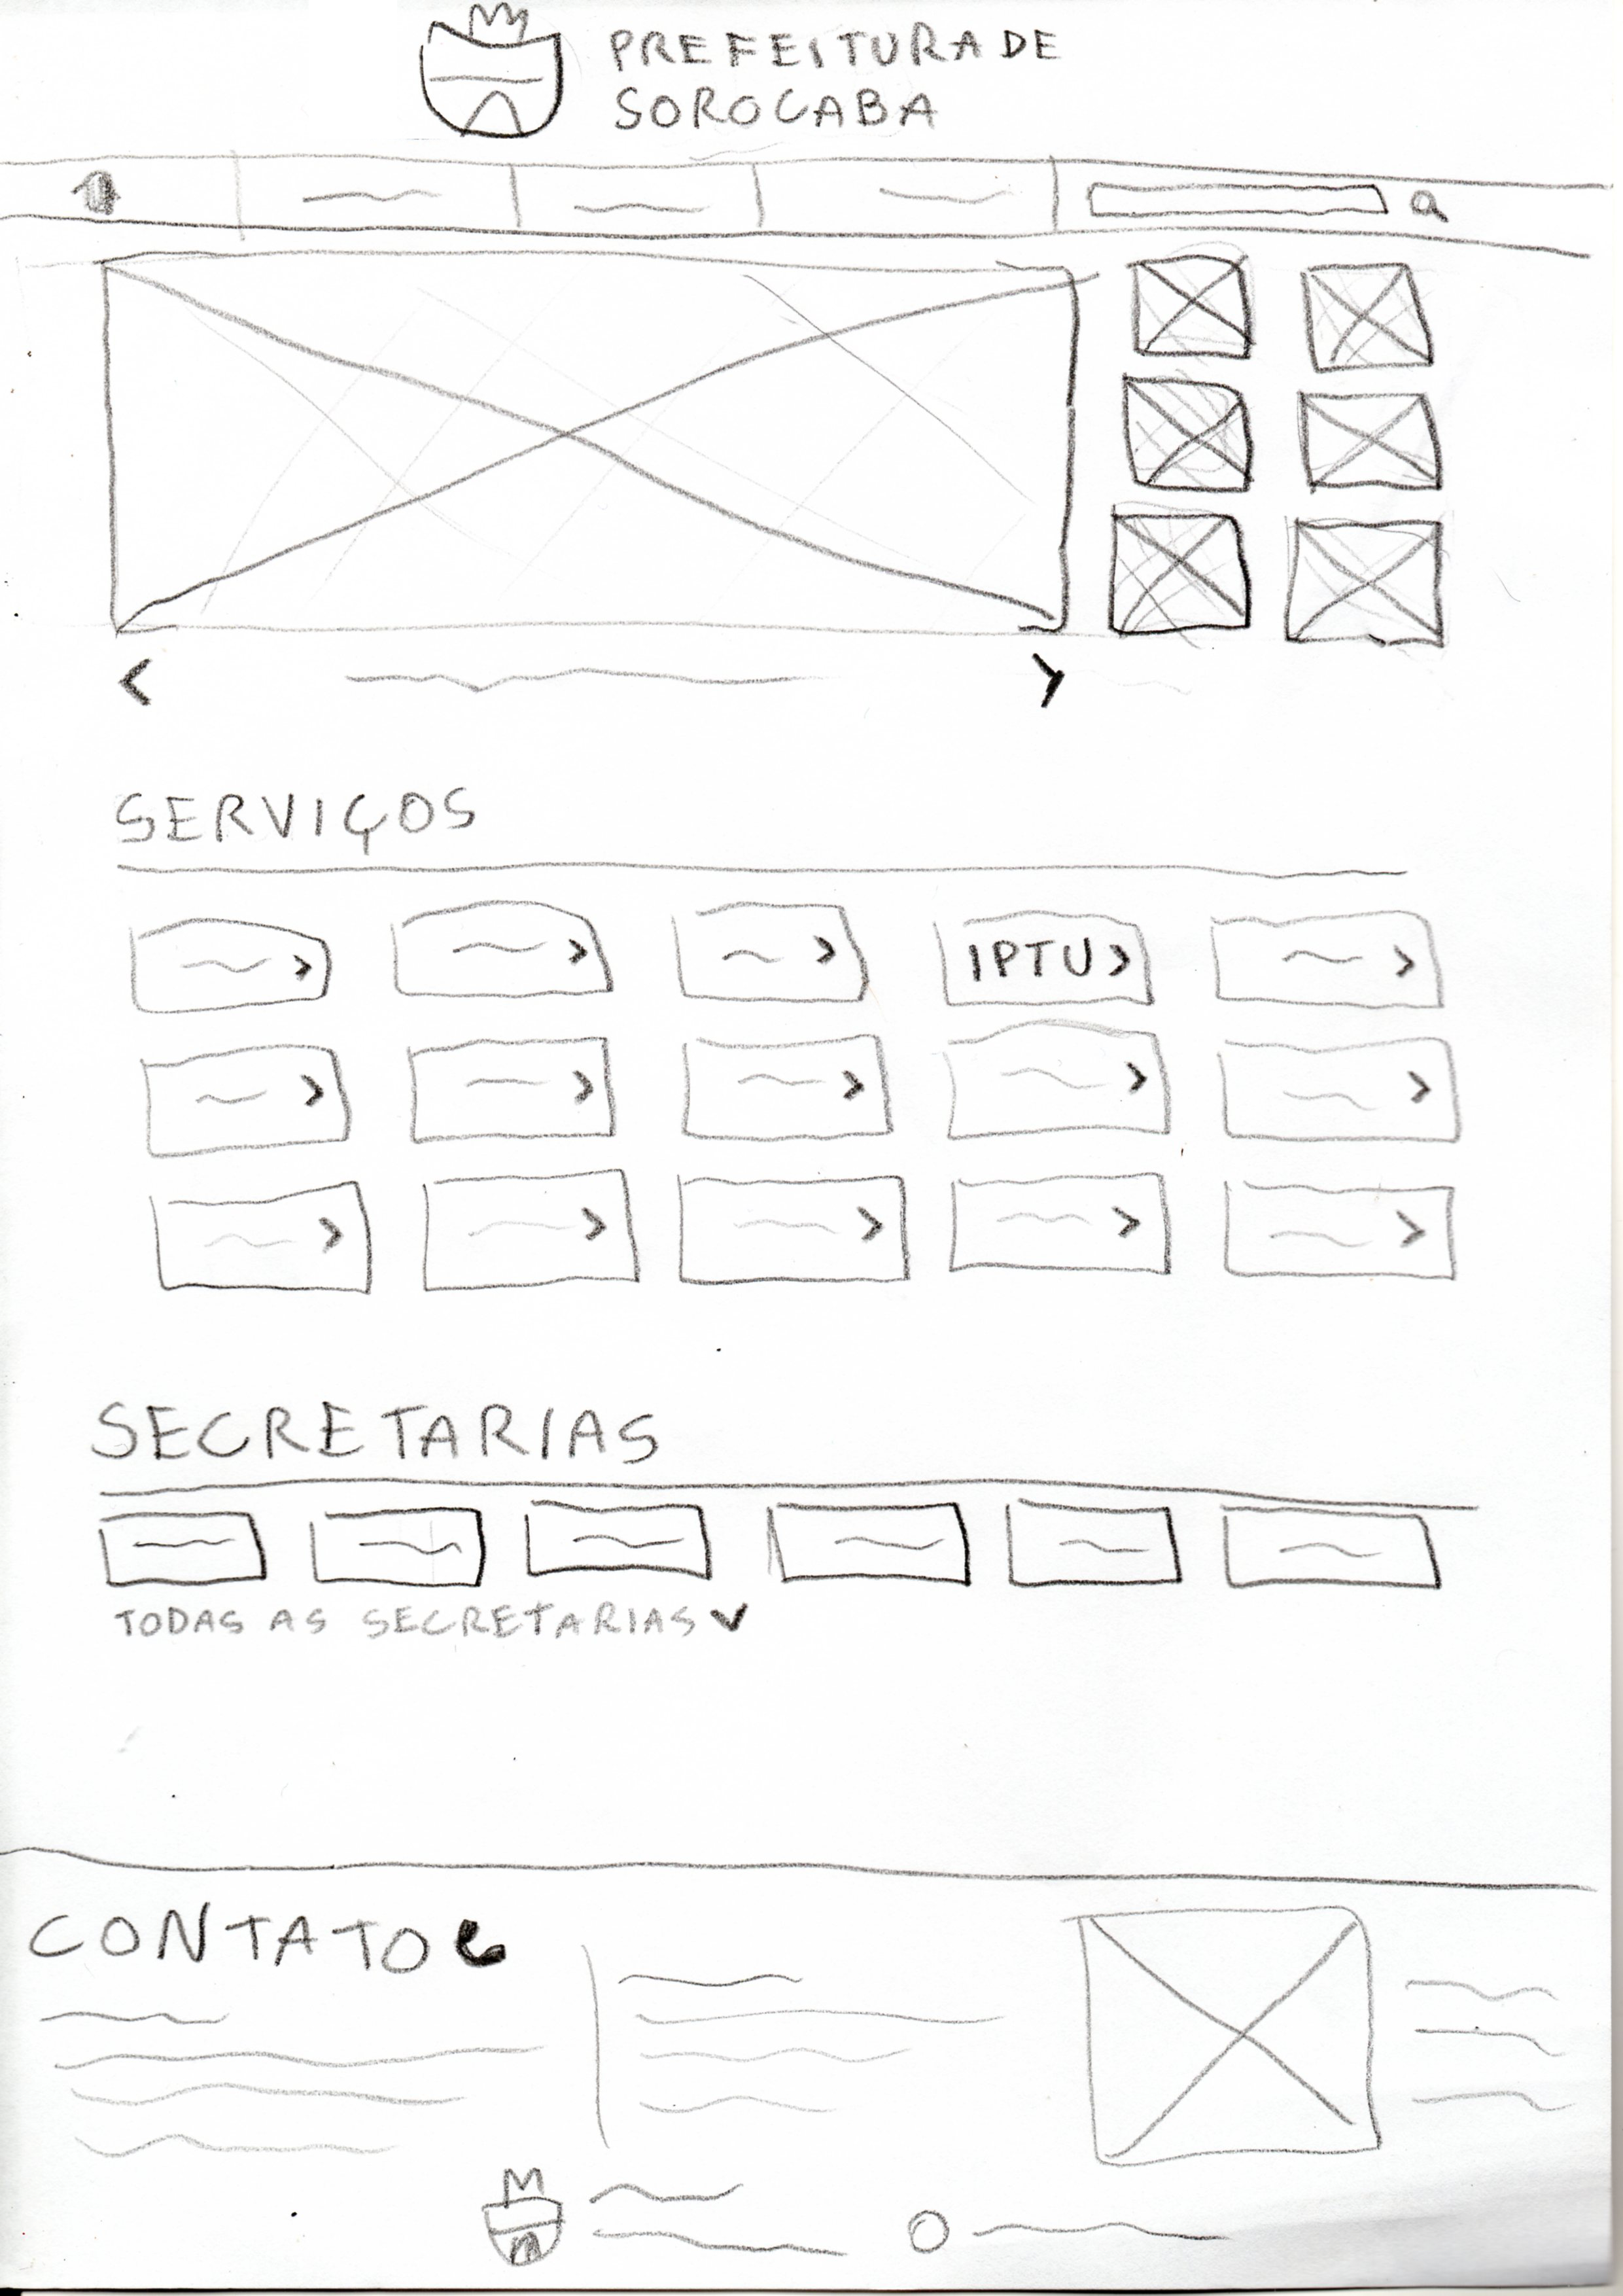 PREFEITURA DE
SOROCABA
SERVIÇOS
IPTU >
SECRETARIAS
TODAS AS SECRETARIAS
CONTATO